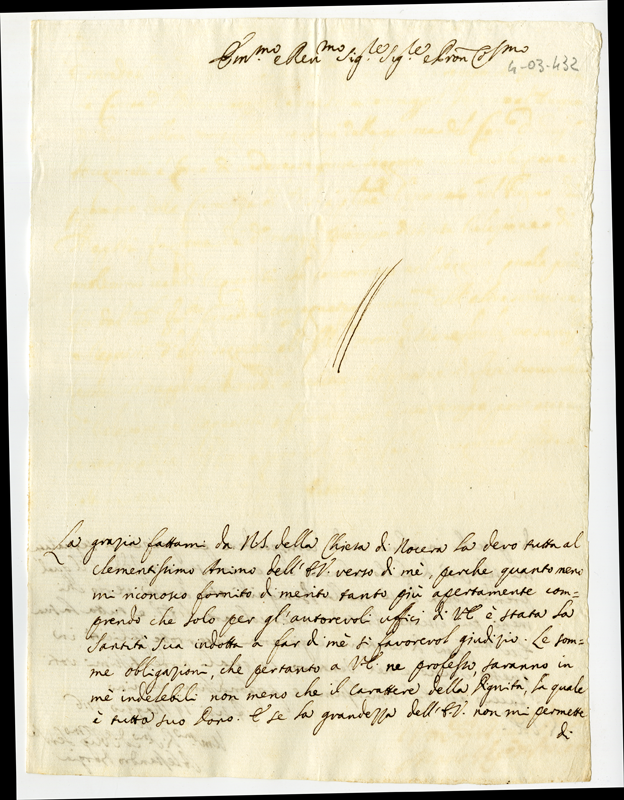 Em.mo e Rev.mo Sig.re Sig.re e Pron Col.mo
4-03-432
La grazia fattami da N.S. della Chiesa di Nocera la devo tutta al
Clementissimo Animo dell'E.V. verso di mè, perche quanto meno
mi riconosco fornito di merito tanto più apertamente com=
prendo che solo per gl'autorevoli uffici di V.E. è stata la
Santità Sua indotta a far di mè si favorevol giudizio. Le som=
me obligazioni, che pertanto a V.E. ne professo, saranno in
mè indelebili non meno che il Carattere della Dignità, la quale
è tutta suo Dono. E se la grandezza dell'E.V. non mi permette
di